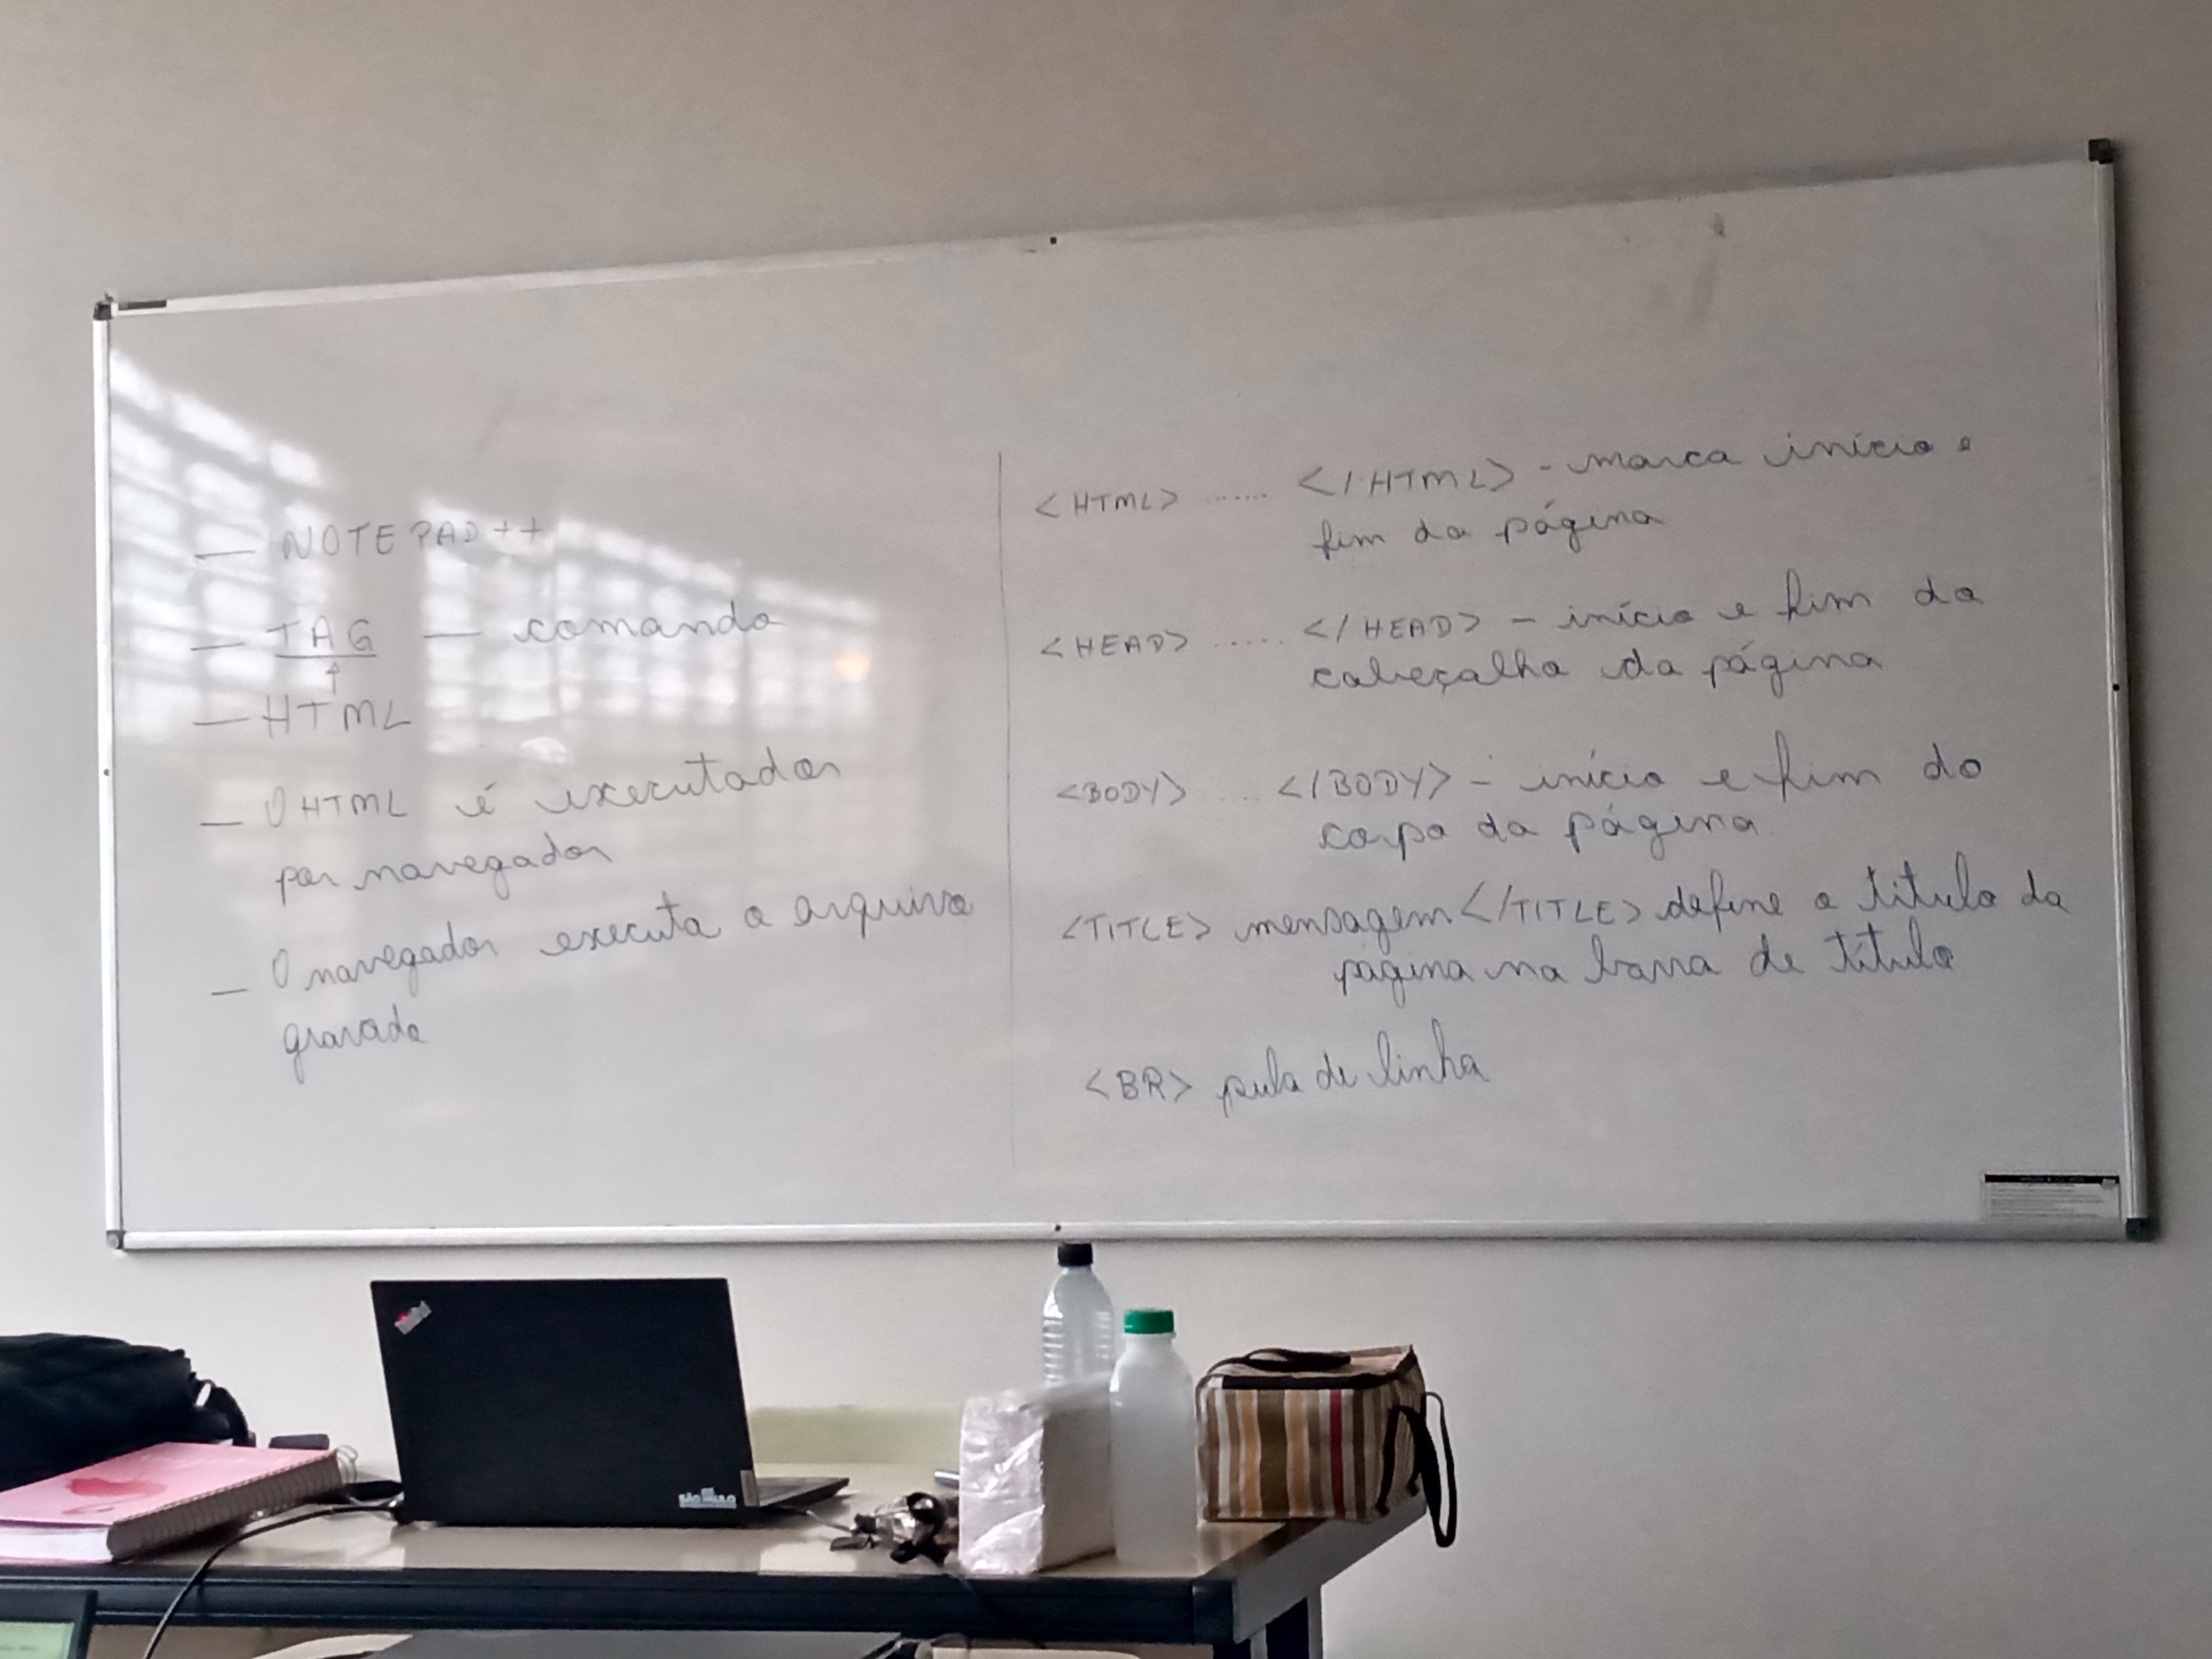 — NOTEPAD++
— TAG — comando
↑
— HTML
— O HTML é executador
por navegador
— O navegador executa o arquivo
gravado
<HTML> ...... </HTML> - marca início e
fim da página
<HEAD> ..... </HEAD> - início e fim do
cabeçalho da página
<BODY> .... </BODY> - início e fim do
corpo da página
<TITLE> mensagem </TITLE> define o título da
página na barra de título
<BR> pula de linha
SÃO PAULO